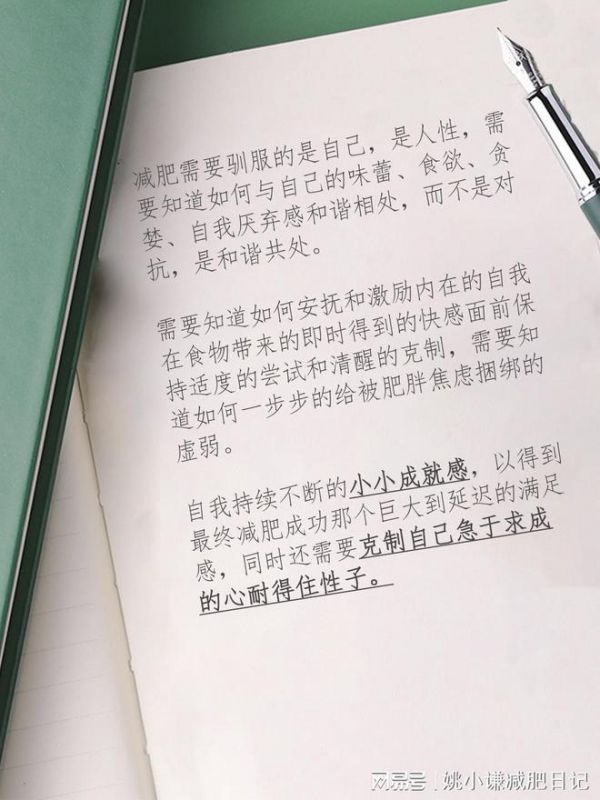 减肥需要驯服的是自己，是人性，需
要知道如何与自己的味蕾、食欲、贪
婪、自我厌弃感和谐相处，而不是对
抗，是和谐共处。
需要知道如何安抚和激励内在的自我
在食物带来的即时得到的快感面前保
持适度的尝试和清醒的克制，需要知
道如何一步步的给被肥胖焦虑捆绑的
虚弱。
自我持续不断的小小成就感，以得到
最终减肥成功那个巨大到延迟的满足
感，同时还需要克制自己急于求成
的心耐得住性子。
网易号 | 姚小谦减肥日记